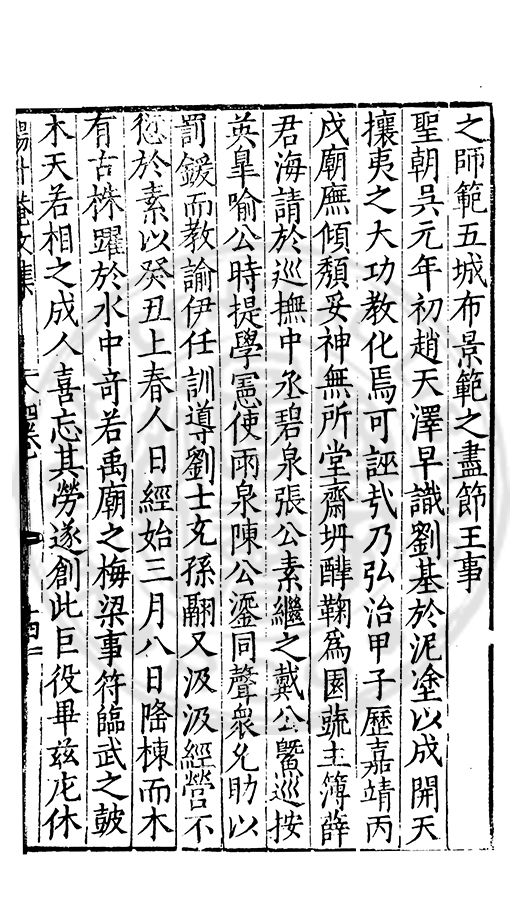 之師範五城布景範之盡節王事
聖朝吳元年初趙天澤早識劉基於泥塗以成開天
攘夷之大功教化焉可誣㢤乃弘治甲子歷嘉靖丙
戌廟廡傾頹妥神無所堂齋坍𨢩鞠為園蔬主簿薛
君海請於巡撫中丞碧泉張公素繼之戴公暨巡按
英臯喻公時提學憲使雨泉陳公鎏同聲衆允助以
罰鍰而教諭伊任訓導劉士充孫翮又汲汲經營不
愆於素以癸丑上春人日經始三月八日隆棟而木
有古株躍於水中竒若禹廟之梅梁事符臨武之皷
木天若相之成人喜忘其勞遂創此巨役畢兹庀休